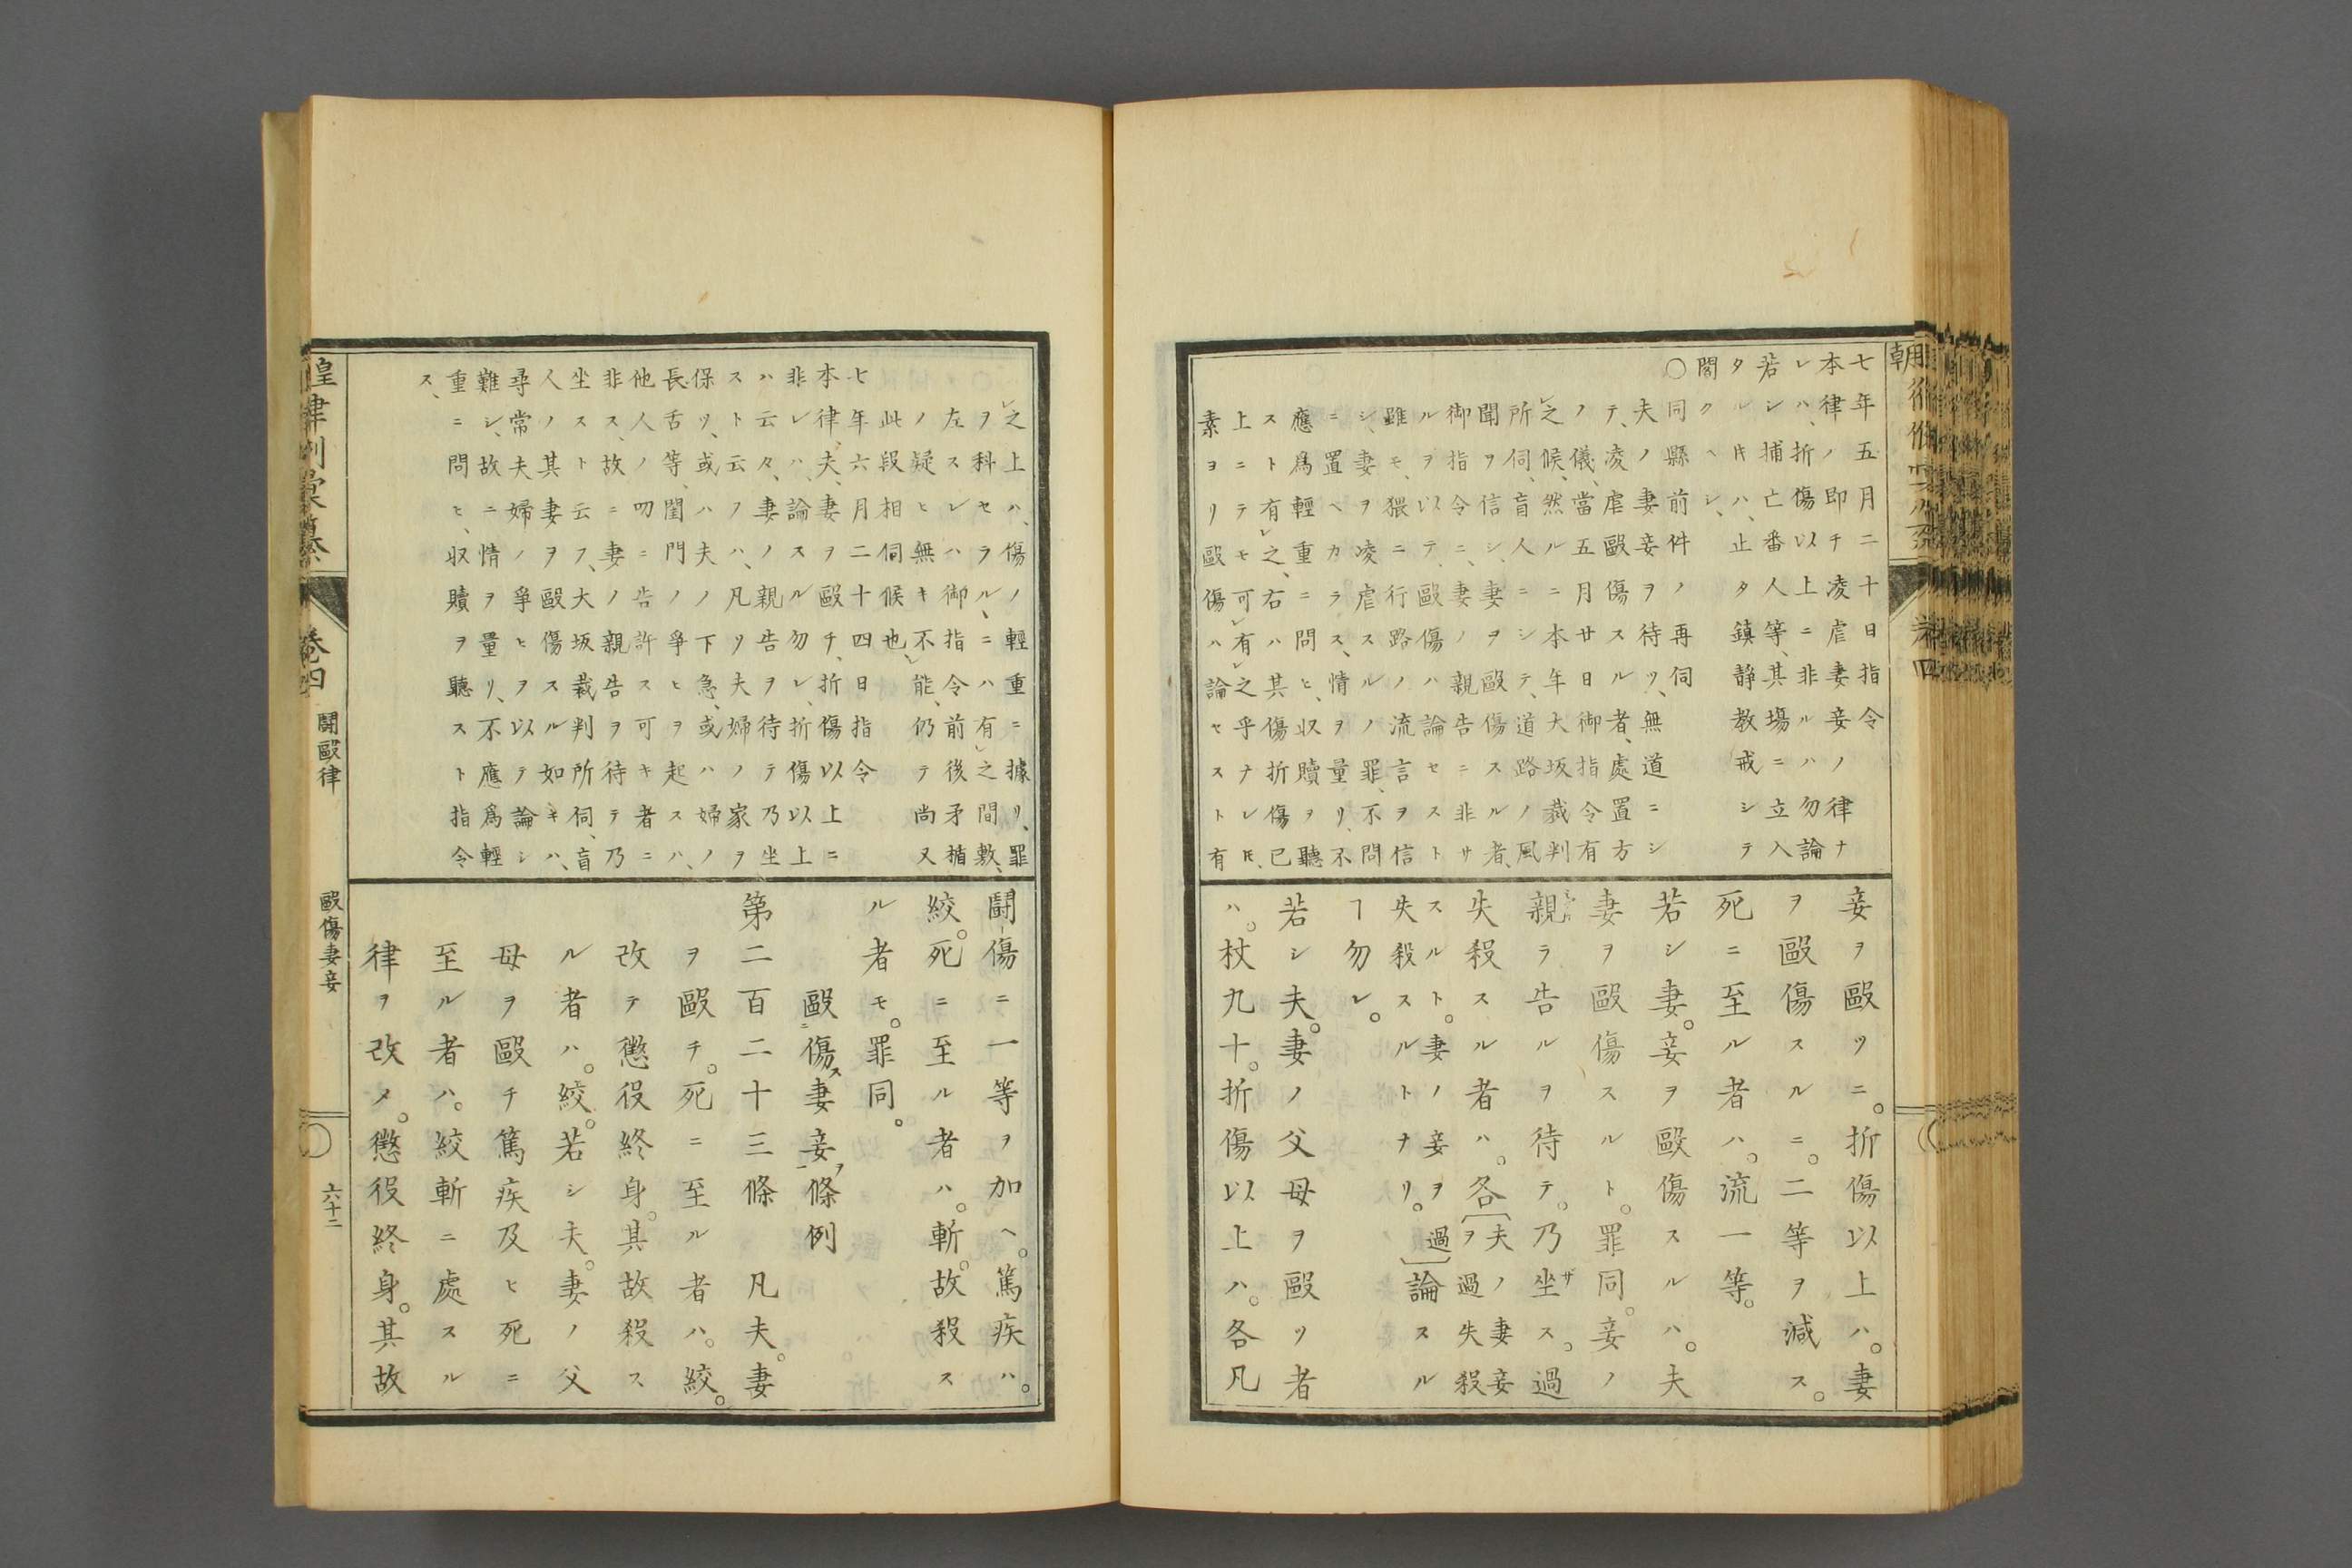 七年五月二十日指令
本律ノ即チ凌虐妻妾ノ律ナ
レハ、折傷以上ニ非ルハ勿論
若シ捕亡番人等、其場ニ立入
タル𪜈ハ、止タ鎮静教戒シテ
閣クヘシ、
○同縣前件ノ再伺
夫ノ妻妾ヲ待ツ、無道ニシ
テ、凌虐毆傷スル者、處置方
ノ儀、當五月廿日御指令有
之候、然ルニ本年大坂裁判
所伺、盲人ニシテ、道路ノ風
聞ヲ信シ、妻ヲ毆傷スル者、
御指令ニ、妻ノ親告ニ非サ
ルヲ以テ、毆傷ハ論セスト
雖モ、猥ニ行路ノ流言ヲ信
シ、妻ヲ凌虐スルノ罪、不問
ニ置ヘカラス、情ヲ量リ、不
應爲輕重ニ問ヒ、収贖ヲ聽
スト有之、右ハ其傷折傷已
上ニテモ可有之乎ナレ𪜈、
素ヨリ毆傷ハ論セスト有
妾ヲ毆ツニ。折傷以上ハ。妻
ヲ毆傷スルニ。二等ヲ減ス。
死ニ至ル者ハ。流一等。
若シ妻。妾ヲ毆傷スルハ。夫
妻ヲ毆傷スルト。罪同。妾ノ
親ラ告ルヲ待テ。乃坐ス。過
失殺スル者ハ。各〔夫ノ妻妾
ヲ過失殺
スルト。妻ノ妾ヲ過
失殺スルトナリ。〕論スル
ヿ勿レ。
若シ夫。妻ノ父母ヲ毆ツ者
ハ。杖九十。折傷以上ハ。各凡
之上ハ、傷ノ輕重ニ據リ、罪
ヲ科セラル、ニハ有之間敷、
左スレハ御指令前後矛楯
ノ疑ヒ無キ不能、仍テ尚又
此段相伺候也、
七年六月二十四日指令
本律、夫、妻ヲ毆チ、折傷以上ニ
非レハ、論スル勿レ、折傷以上
ハ云々、妻ノ親告ヲ待テ乃坐
スト云フハ、凡リ夫婦ノ家ヲ
保ツ、或ハ夫ノ下急、或ハ婦ノ
長舌等、閨門ノ爭ヒヲ起スハ、
他人ノ叨ニ告訐ス可キ者ニ
非ス、故ニ妻ノ親告ヲ待テ乃
坐スト云フ、大坂裁判所伺、盲
人ノ其妻ヲ毆傷スル如キハ、
尋常夫婦ノ爭ヒヲ以テ論シ
難シ、故ニ情ヲ量リ、不應爲輕
重ニ問ヒ、収贖ヲ聽スト指令
ス、
鬪傷ニ一等ヲ加ヘ。篤疾ハ。
絞。死ニ至ル者ハ。斬。故殺ス
ル者モ。罪同。
毆傷妻妾條例
第二百二十三條 凡夫。妻
ヲ毆チ。死ニ至ル者ハ。絞。
改テ懲役終身。其故殺ス
ル者ハ。絞。若シ夫。妻ノ父
母ヲ毆チ篤疾及ヒ死ニ
至ル者ハ。絞斬ニ處スル
律ヲ改メ。懲役終身。其故
卷四 鬪毆律 毆傷妻妾 六十二